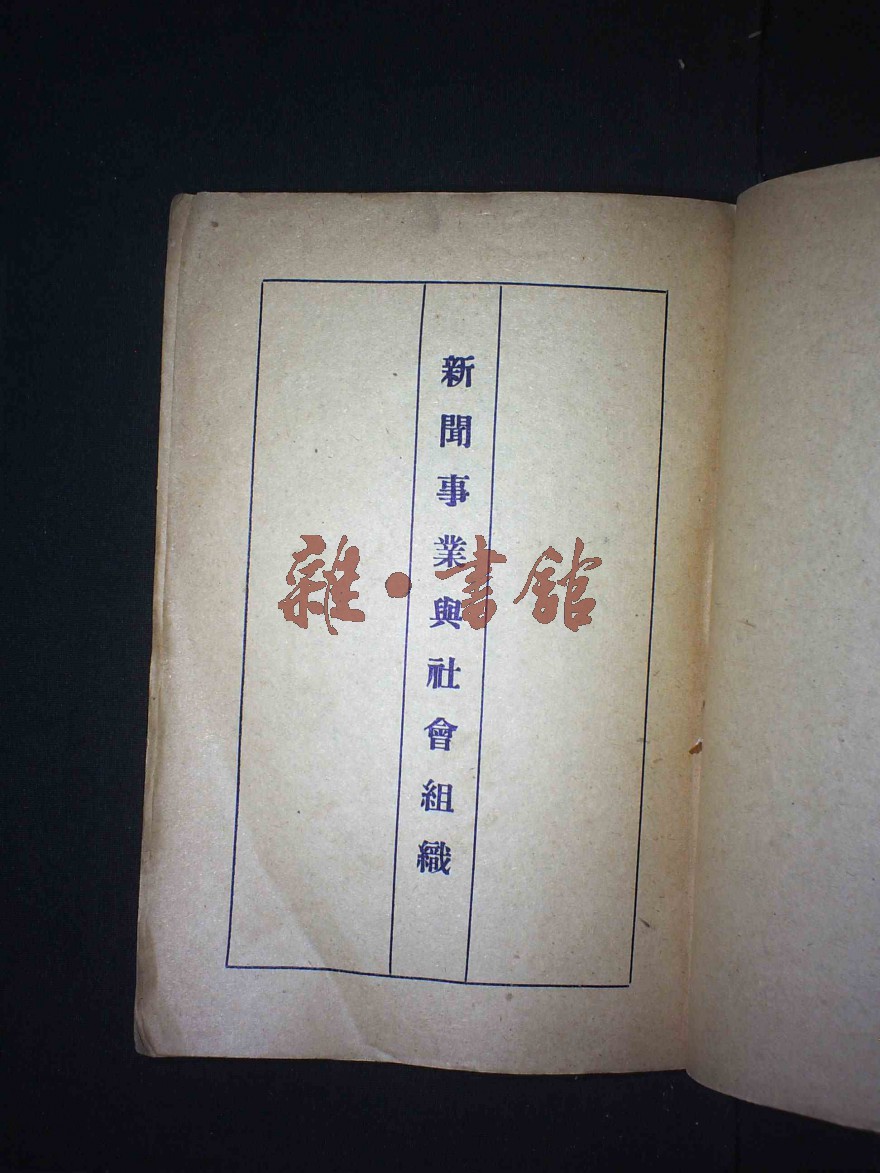 新聞事業與社會組織
雜·書館